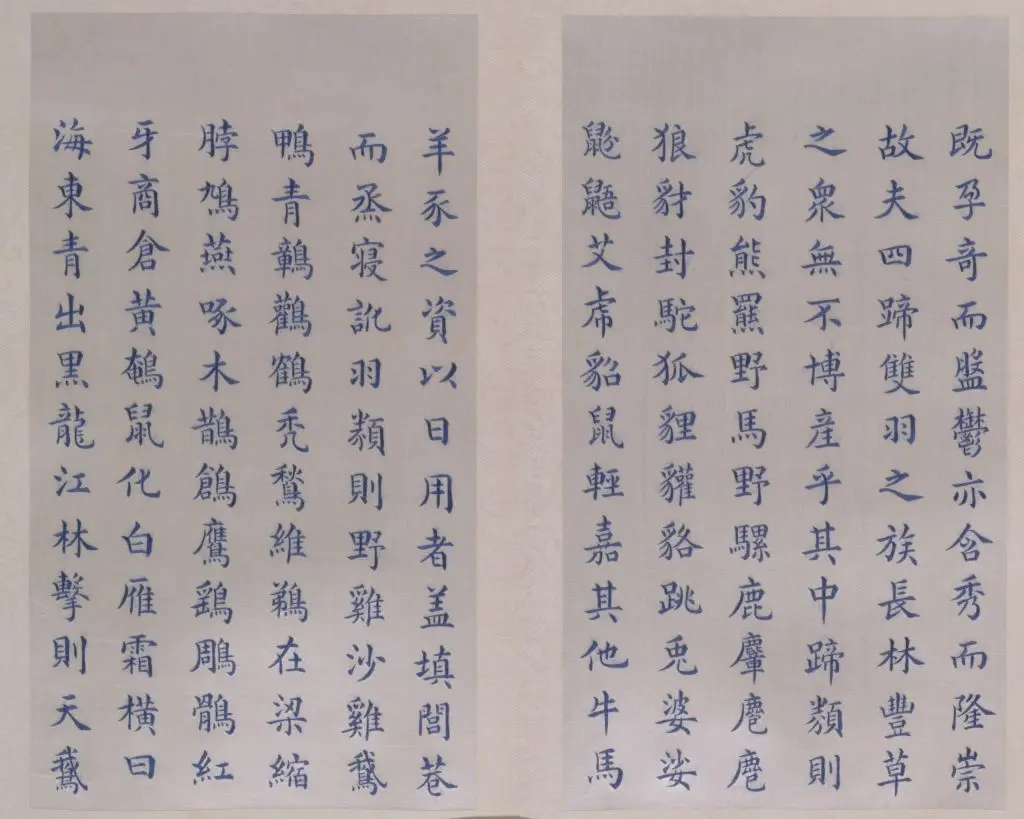 既孕竒而盤鬱亦含秀而隆崇
故夫四蹄雙羽之族長林豐草
之衆無不博産乎其中蹄類則
虎豹熊羆野馬野騾鹿
狼豺封駝狐貍貛貉跳兎婆娑
鼢鼯艾虎貂鼠輕嘉其他牛馬
羊豕之資以日用者盖填閭巷
而烝寢訛羽類則野雞沙雞鵞
鴨青鸛鶴禿鶖維鵜在梁縮
脖鳩燕啄木鵲鶬鷹鷂鵰鶻紅
牙商倉黄鵪鼠化白雁霜橫曰
海東青出黒龍江林擊則天鵞